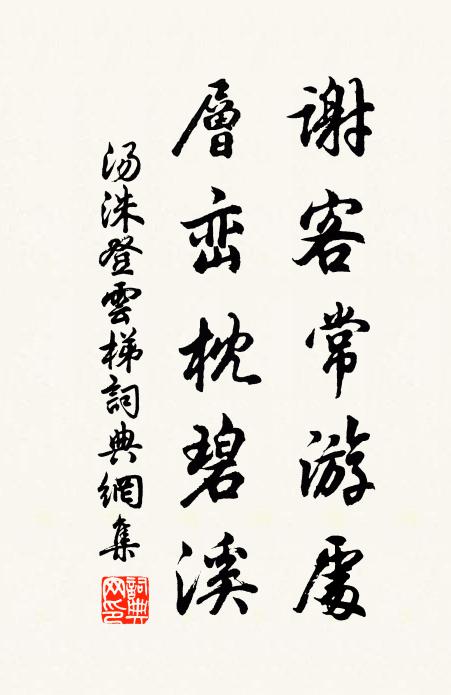 謝客常游處
層峦枕碧溪
汤洙登雲梯詞典網集
詞典網印